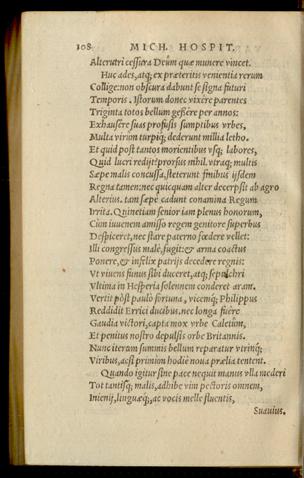 108 MICH. HOSPIT.
Alterutri cessura Deûm quæ munere vincet.
Huc ades, atq; ex præteritis venientia rerum
Collige: non obscura dabunt se signa futuri
Temporis. Istorum donec vixêre parentes
Triginta totos bellum gessêre per annos:
Exhausêre suas profusis sumptibus vrbes,
Multa virûm turpiq; dederunt millia letho.
Et quid post tantos morientibus vsq; labores,
Quid lucri redijt? prorsus nihil. vtraq; multis
Sæpe malis concussa, steterunt finibus ijsdem
Regna tamen: nec quicquam alter decerpsit ab agro
Alterius. tam sæpe cadunt conamina Regum
Irrita. Quinetiam senior iam plenus honorum,
Cùm iuuenem amisso regem genitore superbus
Despiceret, nec stare paterno fœdere vellet:
Illi congressus malè, fugit: & arma coactus
Ponere, & infelix patrijs decedere regnis:
Vt viuens funus sibi duceret, atq; sepulchri
Vltima in Hesperia solennem conderet aram.
Vertit pòst paulò fortuna, vicemq; Philippus
Reddidit Errici ducibus. nec longa fuêre
Gaudia victori, capta mox vrbe Caletûm,
Et penius nostro depulsis orbe Britannis.
Nunc iterum summis bellum reparatur vtrinq;
Viribus, ac si primùm hodie noua prælia tentent.
Quando igitur sine pace nequit manus vlla mederi
Tot tantisq; malis, adhibe vim pectoris omnem,
Inienij, linguæq;, ac vocis melle fluentis,
Suauius.